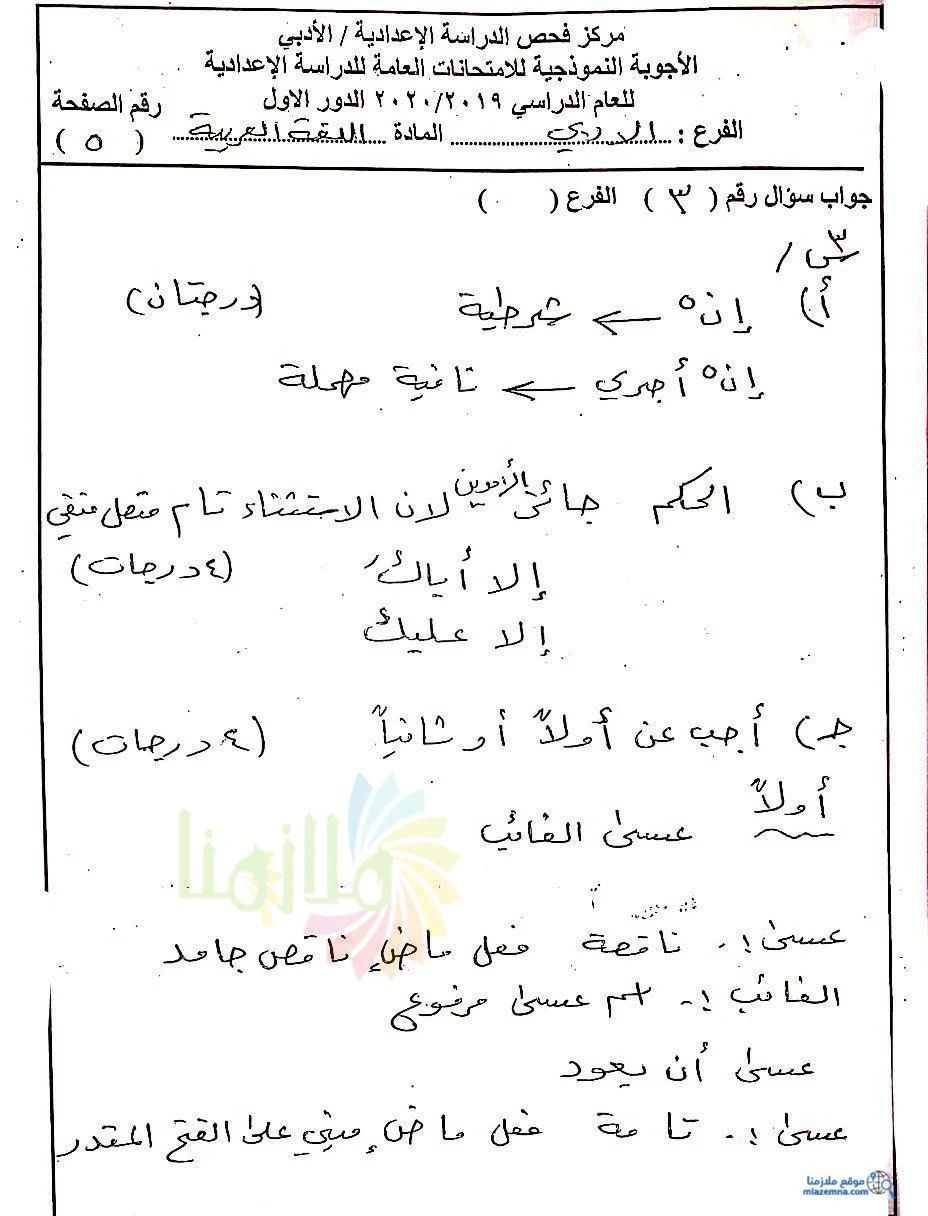 مركز فحص الدراسة الإعدادية / الأدبي
الأجوبة النموذجية للامتحانات العامة للدراسة الإعدادية
للعام الدراسي ٢٠٢٠/٢٠١٩ الدور الاول
رقم الصفحة
الفرع : الادبي المادة اللغة العربية ( ٥ )
جواب سؤال رقم ( ٣ ) الفرع ( )
س٣ /
أ) إنْ ← شرطية (درجتان)
إنْ أجري ← نافية مهملة
ب) الحكم جائز الأمرين لان الاستثناء تام متصل منفي
إلا أياك (٤ درجات)
إلا عليك
جـ) أجب عن أولاً أو ثانياً (٤ درجات)
أولاً عسى الغائب
عسى :. ناقصة فعل ماضٍ ناقص جامد
الغائب :. اسم عسى مرفوع
عسى أن يعود
عسى :. تامة فعل ماضٍ مبني على الفتح المقدر
ملازمنا
موقع ملازمنا
mlazemna.com